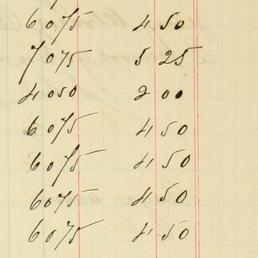 6 075 4 50
7 075 5 25
4 050 2 00
6 075 4 50
6 075 4 50
6 075 4 50
6 075 4 50